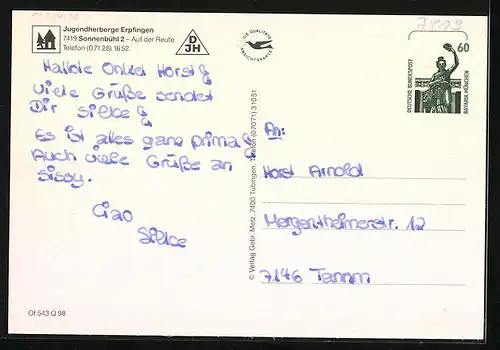 Jugendherberge Erpfingen
7419 Sonnenbühl 2 – Auf der Reute
Telefon (071 28) 16 52
D
JH
Hallole Onkel Horst!
Viele Grüße sendet
Dir Silke!
Es ist alles ganz prima!
Auch viele Grüße an
Sissy.
Ciao
Silke
Of 543 Q 98
© Verlag Gebr. Metz, 7400 Tübingen, Telefon (07071) 31051
60
DEUTSCHE BUNDESPOST
BAVARIA MÜNCHEN
An:
Horst Arnold
Mergentheimerstr. 12
7146 Tamm